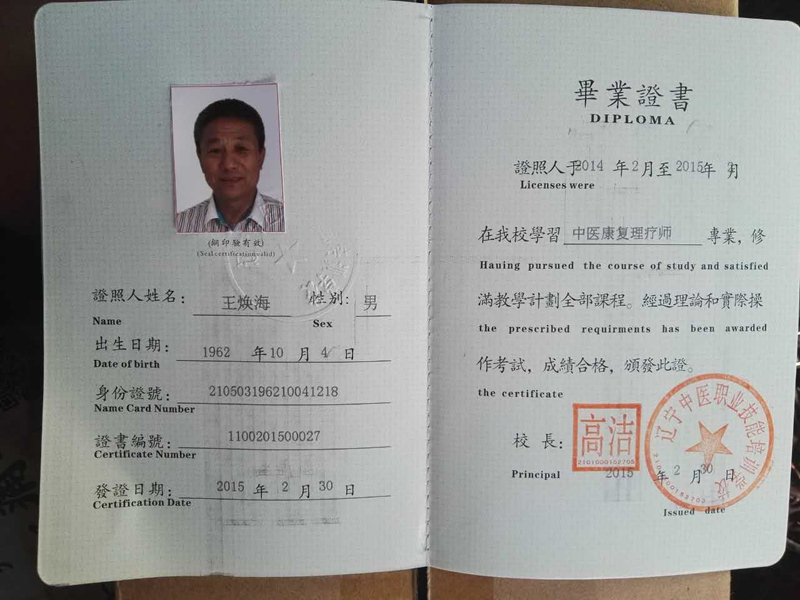 (鋼印驗有效)
(Seal certification valid)
證照人姓名：王焕海 性别：男
Name Sex
出生日期：1962 年 10 月 4 日
Date of birth
身份證號：210503196210041218
Name Card Number
證書編號：1100201500027
Certificate Number
發證日期：2015 年 2 月 30 日
Certification Date
畢業證書
DIPLOMA
證照人于2014 年 2 月至 2015年 月
Licenses were
在我校學習 中医康复理疗师 專業，修
Hauing pursued the course of study and satisfied
滿教學計劃全部課程。經過理論和實際操
the prescribed requirments has been awarded
作考試，成績合格，頒發此證。
the certificate
校長：高洁
2101000152705
Principal 2015 年 2 月 30 日
Issued date
辽宁中医职业技能培训学校